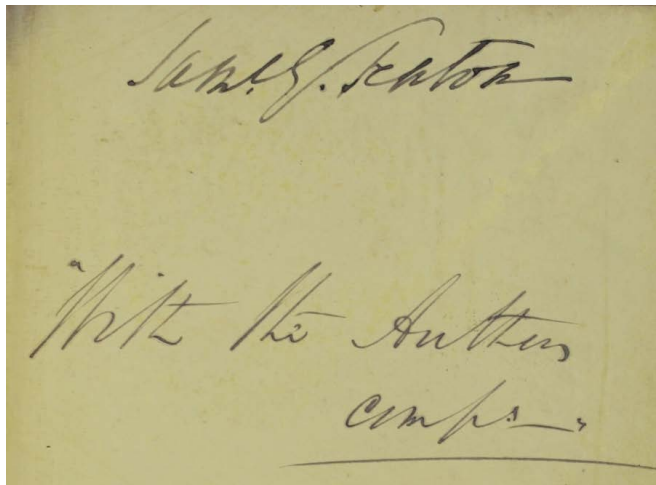 Saml. G. Fenton
"With the Authors
comps."